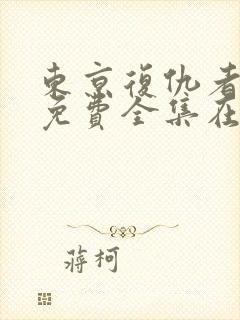 東京復仇者
免費全集在
蔣柯